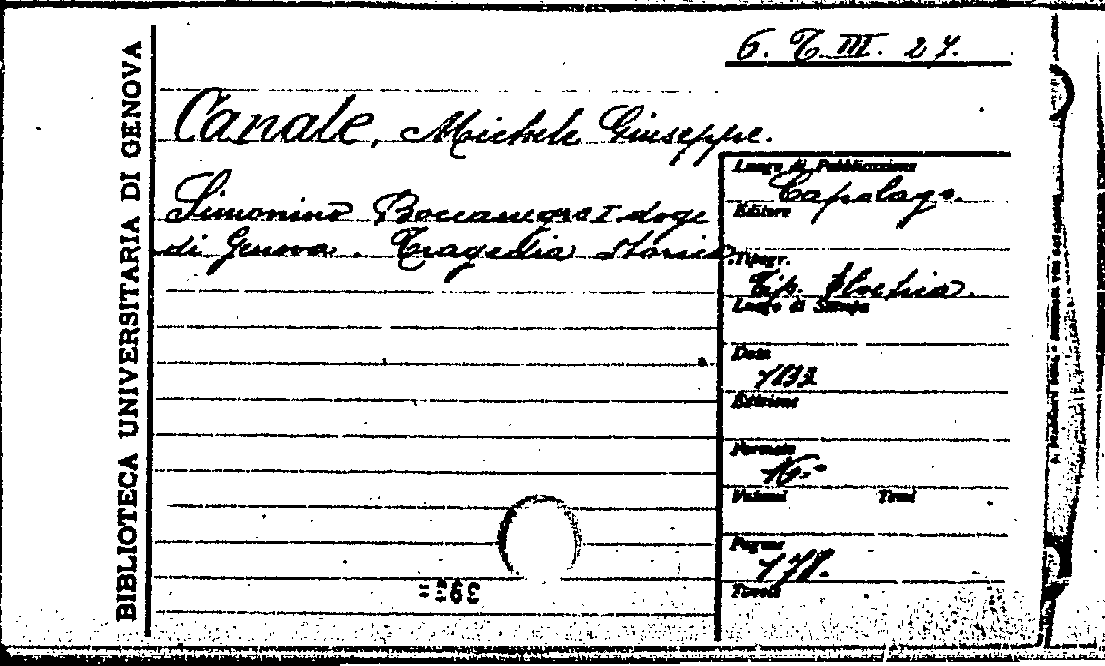 BIBLIOTECA UNIVERSITARIA DI GENOVA
6. T. III. 27.
Canale, Michele Giuseppe.
Simonino Boccanegra I doge
di Genova. Tragedia storica.
Luogo di Pubblicazione
Capolago.
Editore
Tipogr.
Tip. Elvetica.
Luogo di Stampa
Data
1833
Edizione
Formato
16.°
Volumi Tomi
Pagine
178.
Tavole